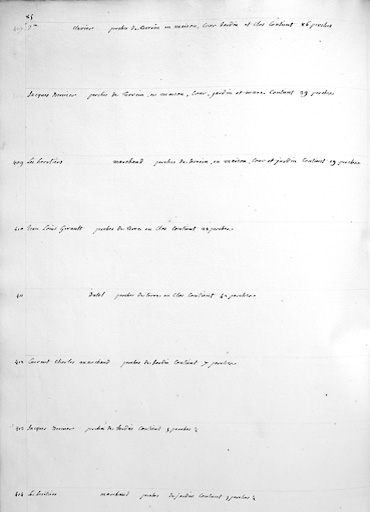 85
perches de terrein en maison, Cour Jardin et Clos Contient 86 perches
Jacques perches de terrein en maison, Cour, jardin et mare Contient 29 perches
409 Les heretiers marchand perches de terrein, en maison, Cour et jardin Contient 19 perches
410 Jean Louis Girault perches de terre en Clos Contient perches
411 perches de terre en Clos Contient perches
412 Laurent Charles marchand perches de Jardin Contient 7 perches
413 Jacques perches de Jardin Contient 3 perches ½
414 Les heretiers marchand perches de jardin Contient 3 perches ½